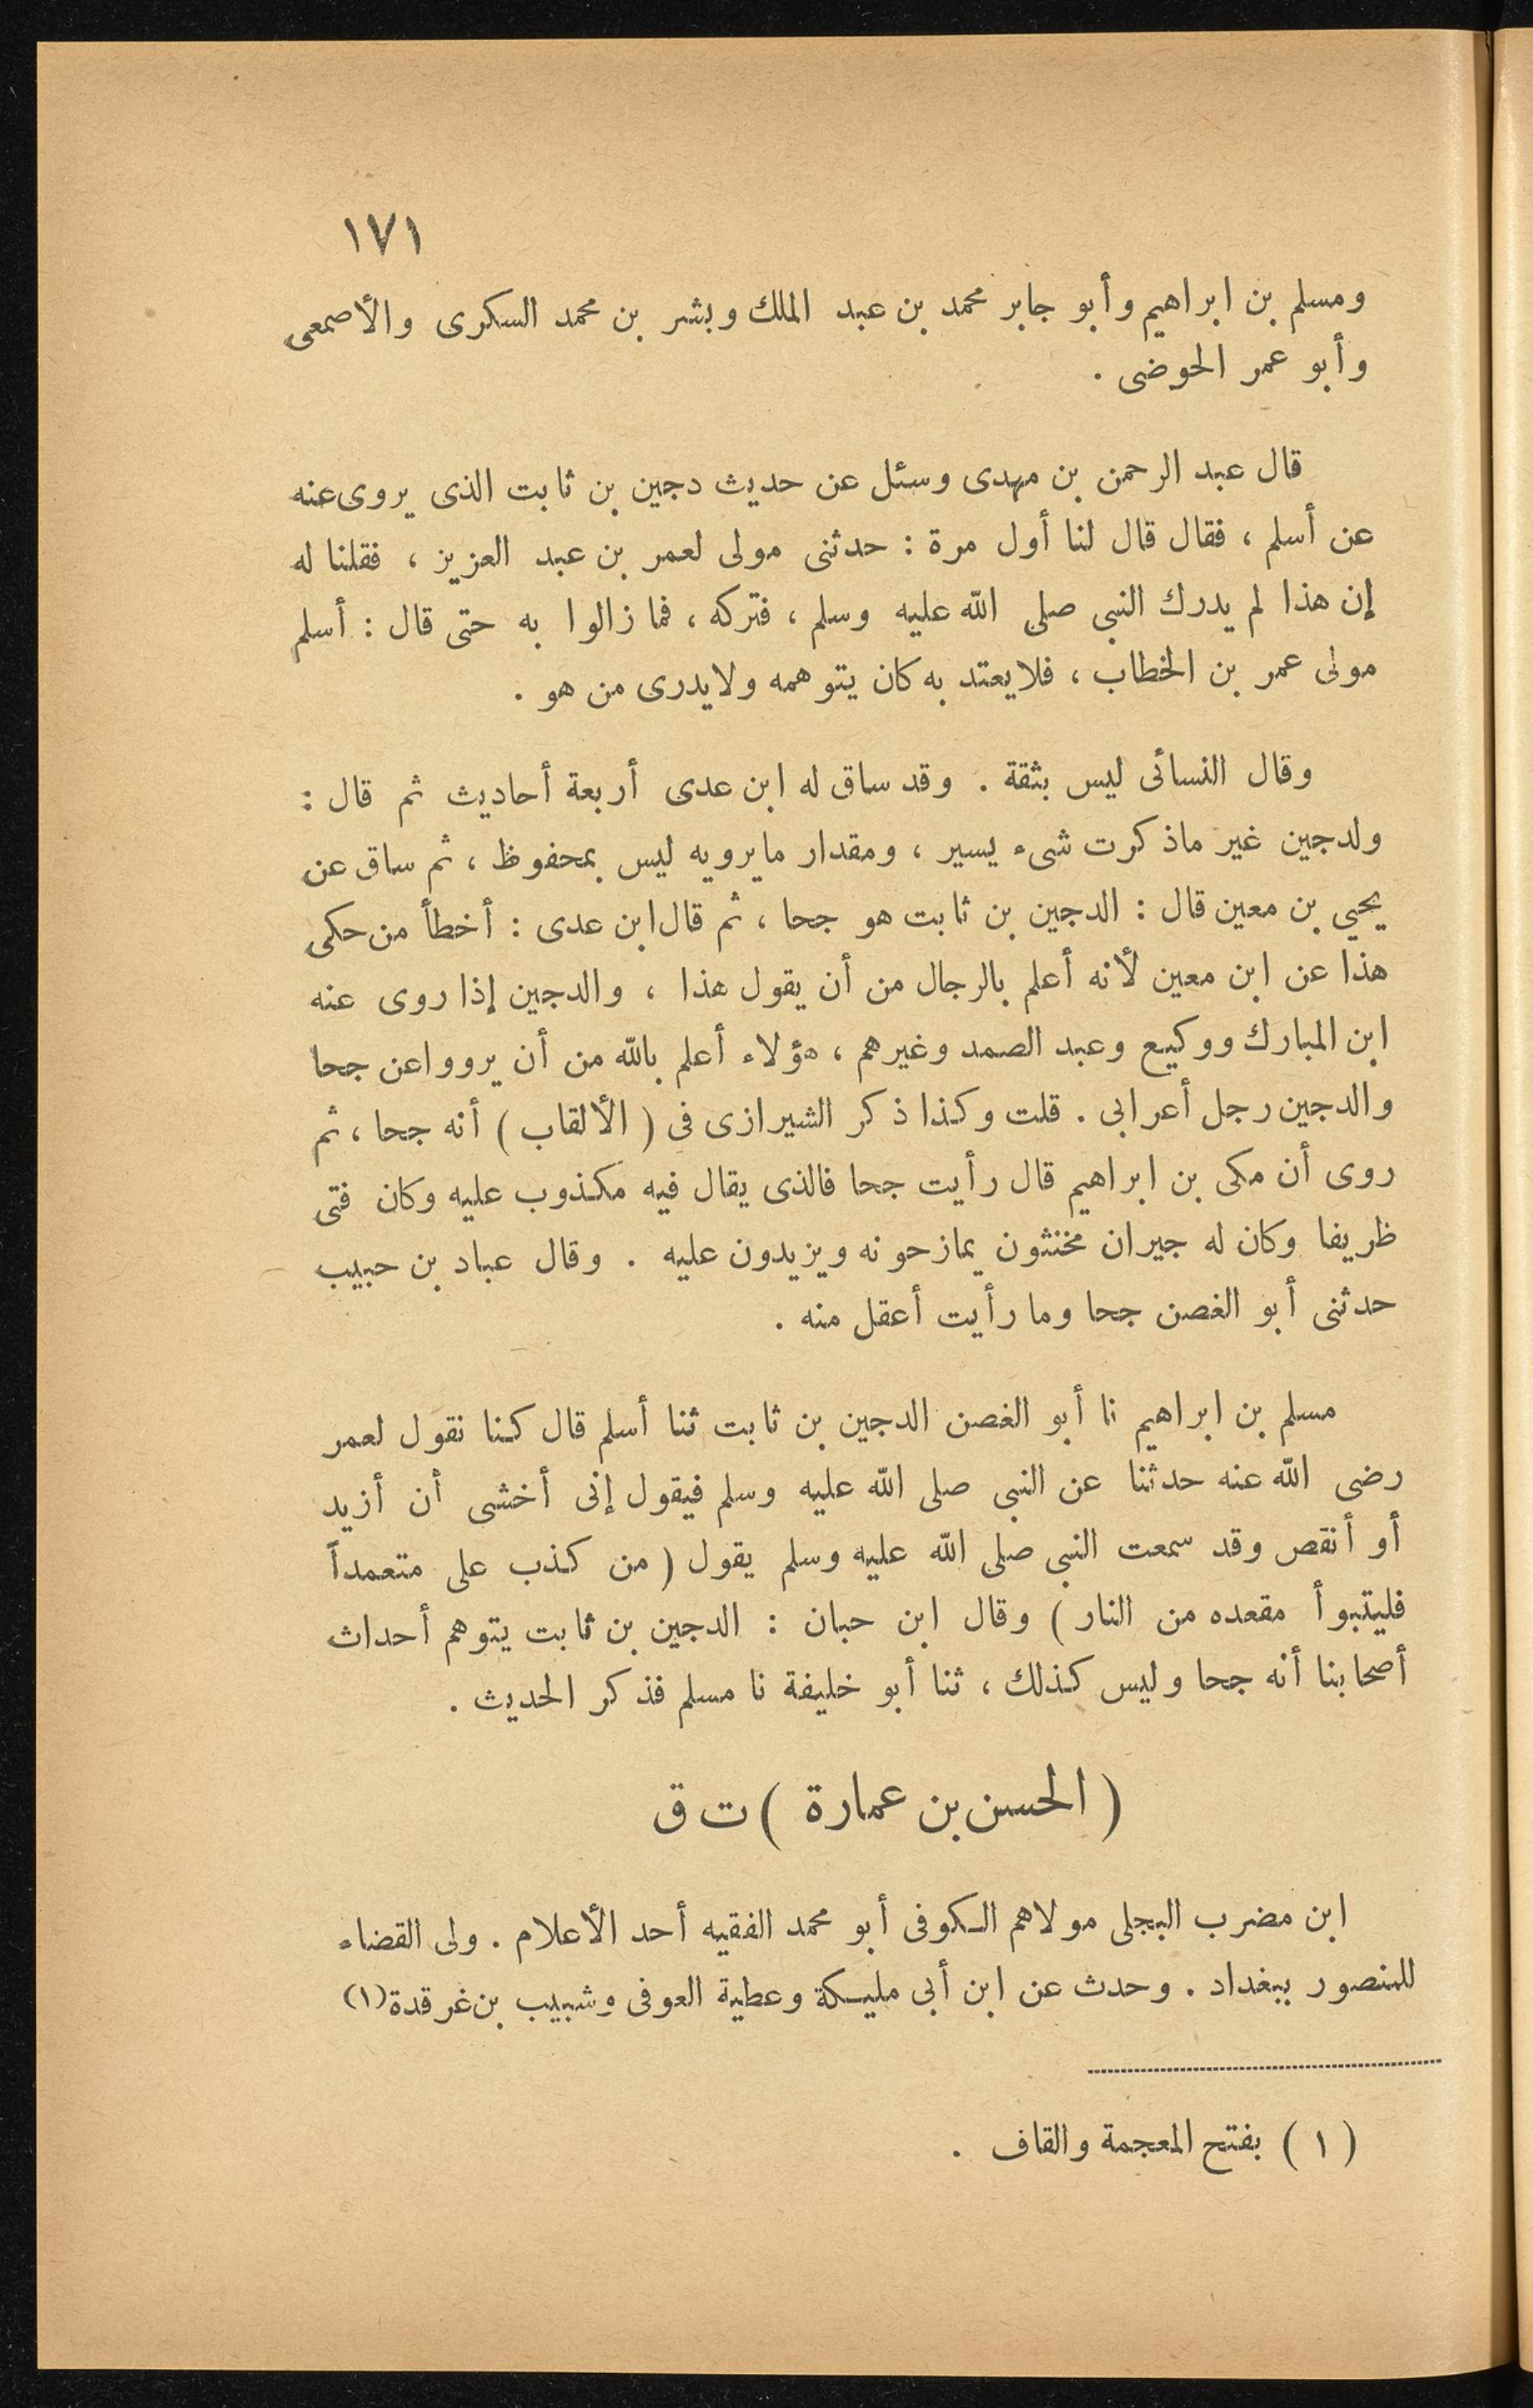 ١٧١
ومسلم بن ابراهيم وأبو جابر محمد بن عبد الملك وبشر بن محمد السكرى والأصمعى
وأبو عمر الحوضى .
قال عبد الرحمن بن مهدى وسئل عن حديث دجين بن ثابت الذى يروى عنه
عن أسلم ، فقال قال لنا أول مرة : حدثنى مولى لعمر بن عبد العزيز ، فقلنا له
إن هذا لم يدرك النبي صلى الله عليه وسلم ، فتركه ، فما زالوا به حتى قال : أسلم
مولى عمر بن الخطاب ، فلا يعتد به كان يتوهمه ولا يدرى من هو .
وقال النسائى ليس بثقة . وقد ساق له ابن عدى أربعة أحاديث ثم قال :
ولدجين غير ماذكرت شىء يسير ، ومقدار مايرويه ليس بمحفوظ ، ثم ساق عن
يحيي بن معين قال : الدجين بن ثابت هو جحا ، ثم قال ابن عدى : أخطأ من حكى
هذا عن ابن معين لأنه أعلم بالرجال من أن يقول هذا ، والدجين إذا روى عنه
ابن المبارك ووكيع وعبد الصمد وغيرهم ، هؤلاء أعلم بالله من أن يرووا عن جحا
والدجين رجل أعرابى . قلت وكذا ذكر الشيرازى فى ( الألقاب ) أنه جحا ، ثم
روى أن مكى بن ابراهيم قال رأيت جحا فالذى يقال فيه مكذوب عليه وكان فتى
ظريفا وكان له جيران مخنثون يمازحونه ويزيدون عليه . وقال عباد بن حبيب
حدثنى أبو الغصن جحا وما رأيت أعقل منه .
مسلم بن ابراهيم نا أبو الغصن الدجين بن ثابت ثنا أسلم قال كنا نقول لعمر
رضى الله عنه حدثنا عن النبى صلى الله عليه وسلم فيقول إنى أخشى أن أزيد
أو أنقص وقد سمعت النبى صلى الله عليه وسلم يقول ( من كذب على متعمداً
فليتبوأ مقعده من النار ) وقال ابن حبان : الدجين بن ثابت يتوهم أحداث
أصحابنا أنه جحا وليس كذلك ، ثنا أبو خليفة نا مسلم فذكر الحديث .
( الحسن بن عمارة ) ت ق
ابن مضرب البجلى مولاهم الكوفى أبو محمد الفقيه أحد الأعلام . ولى القضاء
للمنصور ببغداد . وحدث عن ابن أبى مليكة وعطية العوفى وشبيب بن غرقدة (١)
( ١ ) بفتح المعجمة والقاف .